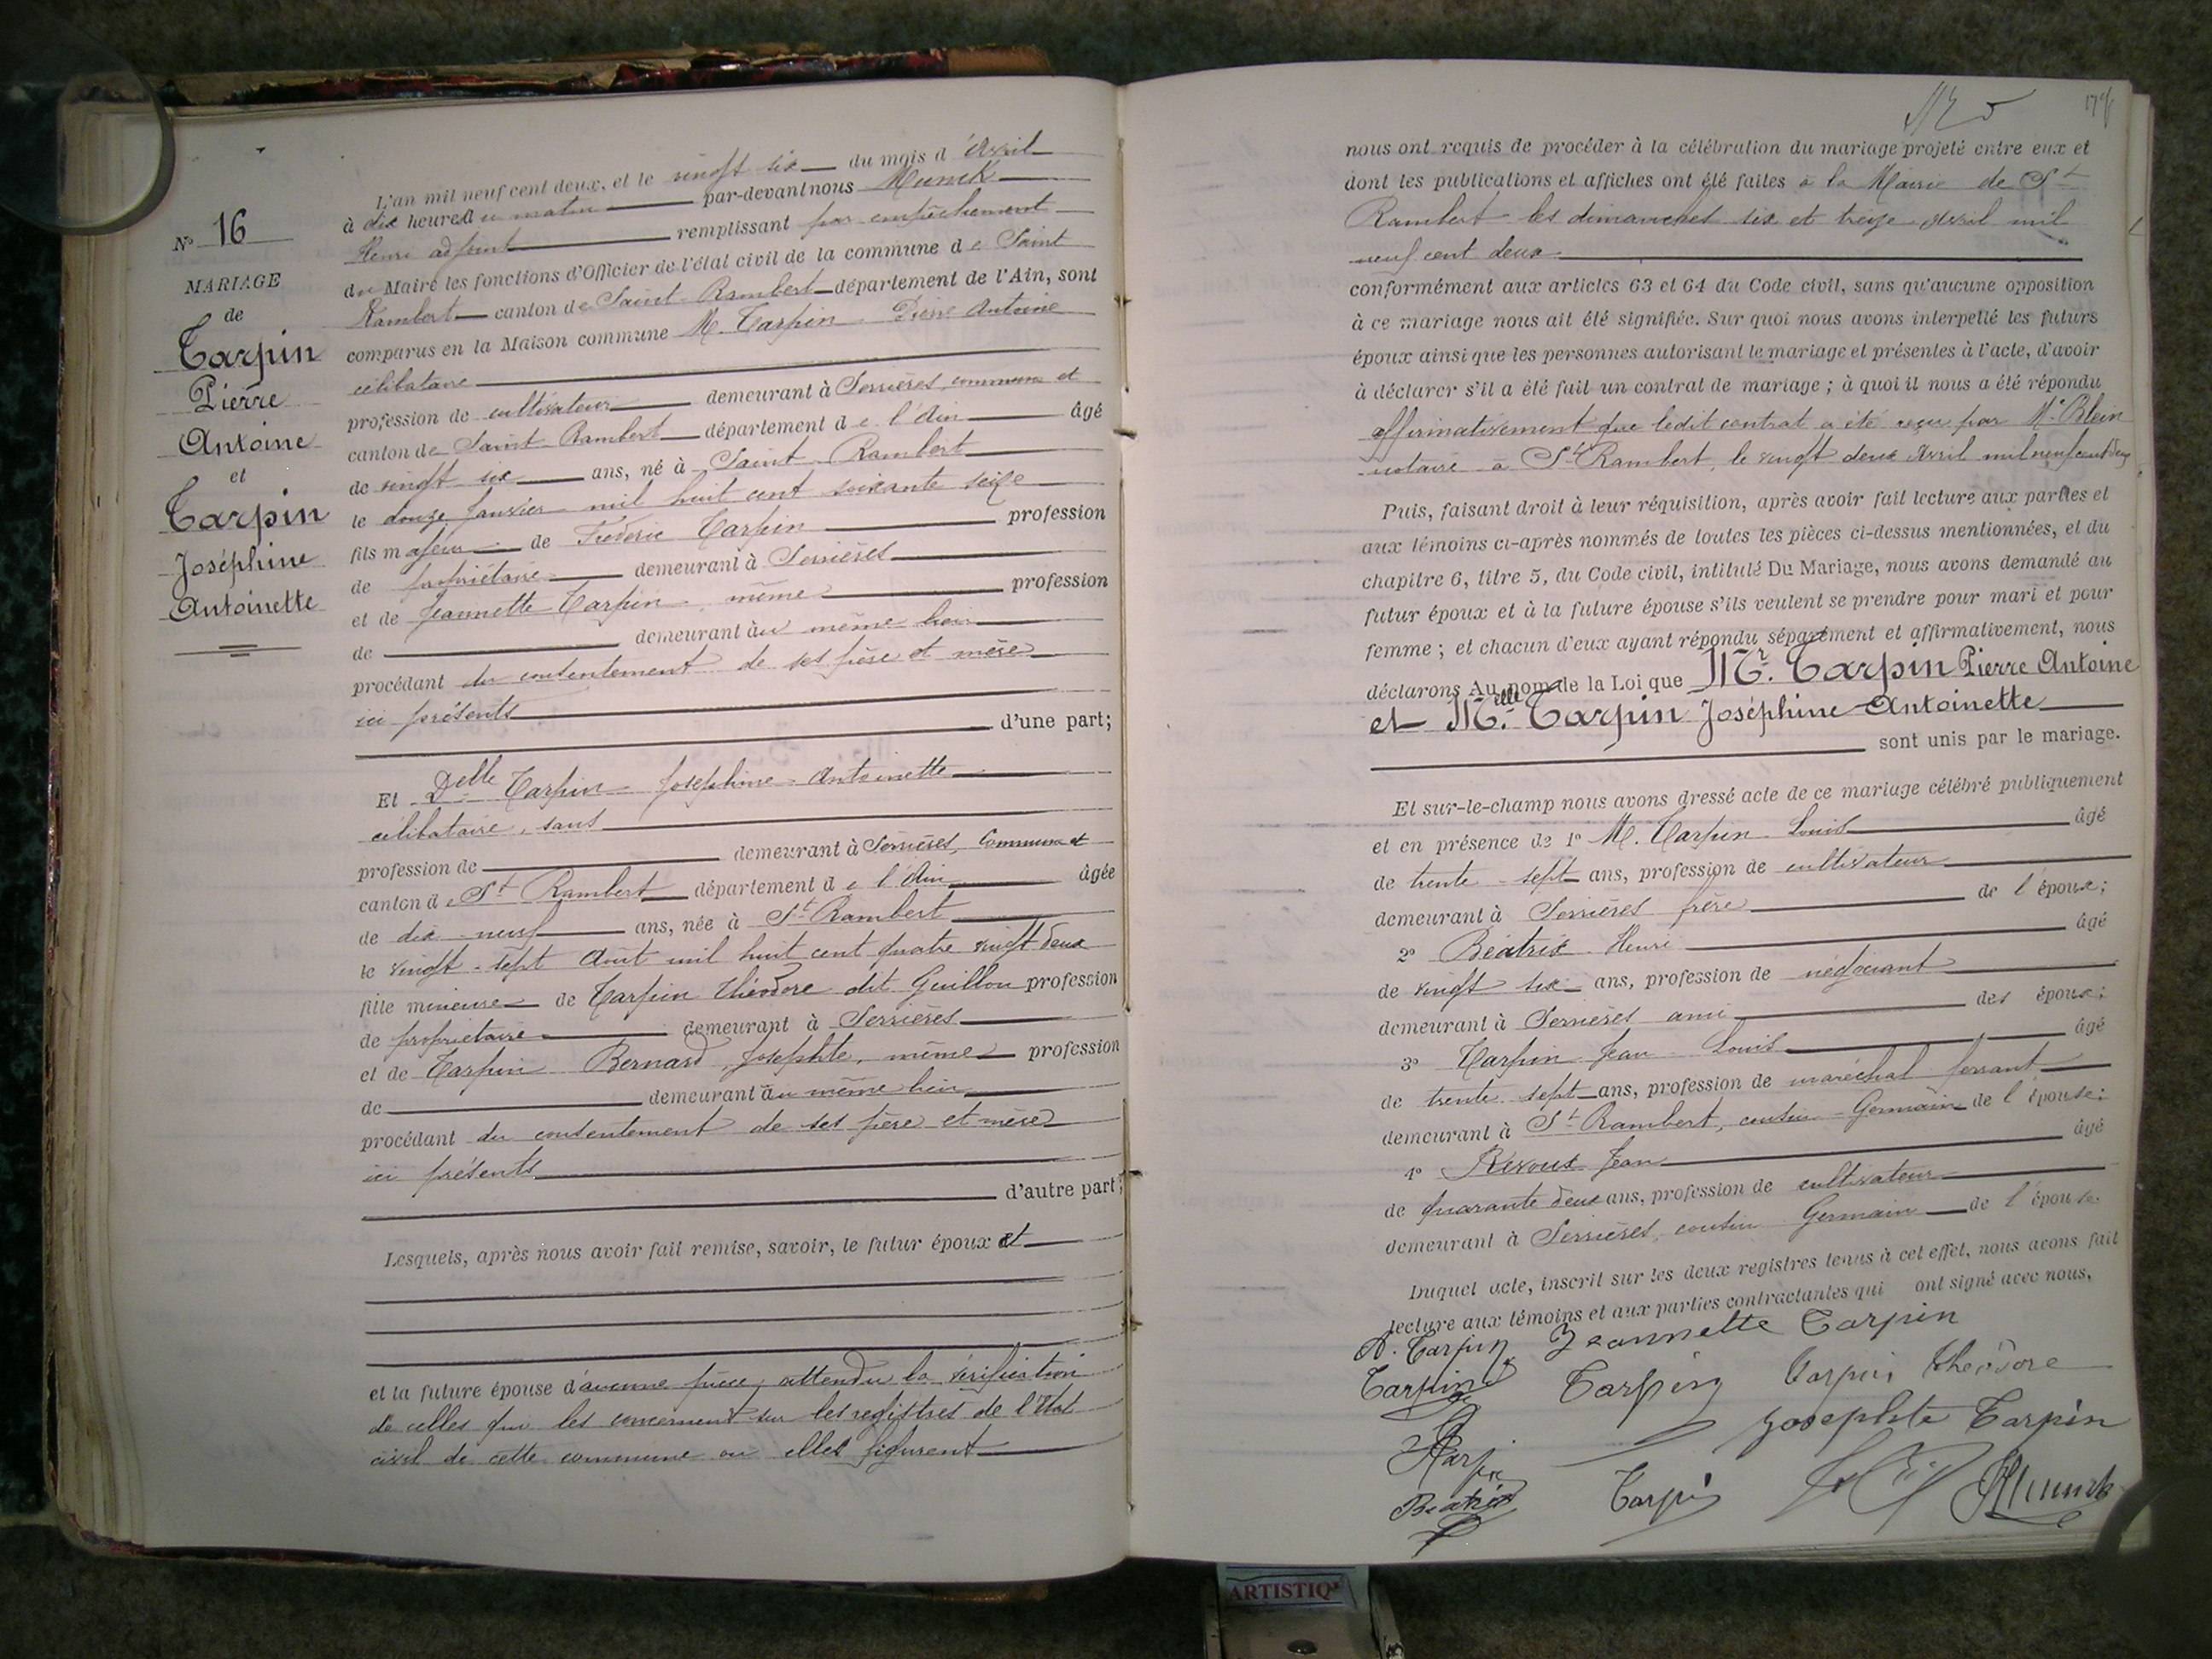 N° 16
MARIAGE
de
Tarpin
Pierre
Antoine
et
Tarpin
Joséphine
Antoinette
L'an mil neuf cent deux, et le vingt six du mois d'Avril
à dix heures du matin par-devant nous Munck
Henri adjoint remplissant par empêchement
du Maire les fonctions d'Officier de l'état civil de la commune de Saint
Rambert canton de Saint-Rambert département de l'Ain, sont
comparus en la Maison commune M. Tarpin Pierre Antoine
célibataire
profession de cultivateur demeurant à Serrières, commune et
canton de Saint-Rambert département de l'Ain âgé
de vingt six ans, né à Saint Rambert
le douze Janvier mil huit cent soixante seize
fils majeur de Fréderic Tarpin profession
de propriétaire demeurant à Serrières
et de Jeannette Tarpin, même profession
de demeurant au même lieu
procédant du consentement de ses père et mère
ici présents
d'une part;
Et Delle Tarpin Joséphine Antoinette
célibataire, sans
profession de demeurant à Serrières, Commune et
canton de St Rambert département de l'Ain âgée
de dix neuf ans, née à St Rambert
le vingt-sept Août mil huit cent quatre vingt deux
fille mineure de Tarpin Théodore dit Guillon profession
de propriétaire demeurant à Serrières
et de Tarpin Bernard Josephte, même profession
de demeurant au même lieu
procédant du consentement de ses père et mère
ici présents
d'autre part;
Lesquels, après nous avoir fait remise, savoir, le futur époux et
et la future épouse d'aucune pièce, attendu la vérification
de celles qui les concernent sur les registres de l'état
civil de cette commune où elles figurent
nous ont requis de procéder à la célébration du mariage projeté entre eux et
dont les publications et affiches ont été faites à la Mairie de St
Rambert les dimanches six et treize Avril mil
neuf cent deux
conformément aux articles 63 et 64 du Code civil, sans qu'aucune opposition
à ce mariage nous ait été signifiée. Sur quoi nous avons interpellé les futurs
époux ainsi que les personnes autorisant le mariage et présentes à l'acte, d'avoir
à déclarer s'il a été fait un contrat de mariage; à quoi il nous a été répondu
affirmativement que ledit contrat a été reçu par Me Blein
notaire à St Rambert, le vingt deux Avril mil neuf cent deux
Puis, faisant droit à leur réquisition, après avoir fait lecture aux parties et
aux témoins ci-après nommés de toutes les pièces ci-dessus mentionnées, et du
chapitre 6, titre 5, du Code civil, intitulé Du Mariage, nous avons demandé au
futur époux et à la future épouse s'ils veulent se prendre pour mari et pour
femme; et chacun d'eux ayant répondu séparément et affirmativement, nous
déclarons Au nom de la Loi que Mr. Tarpin Pierre Antoine
et Melle Tarpin Joséphine Antoinette
sont unis par le mariage.
Et sur-le-champ nous avons dressé acte de ce mariage célébré publiquement
et en présence de 1° M. Tarpin Louis âgé
de trente-sept ans, profession de cultivateur
demeurant à Serrières frère de l'époux;
2° Béatrix Henri âgé
de vingt six ans, profession de négociant
demeurant à Serrières ami des époux;
3° Tarpin Jean Louis âgé
de trente sept ans, profession de maréchal ferrant
demeurant à St Rambert, cousin-Germain de l'épouse;
4° Revoux Jean âgé
de quarante deux ans, profession de cultivateur
demeurant à Serrières, cousin Germain de l'épouse.
Duquel acte, inscrit sur les deux registres tenus à cet effet, nous avons fait
lecture aux témoins et aux parties contractantes qui ont signé avec nous.
A. Tarpin Jeannette Tarpin
Tarpin Tarpin Tarpin Théodore
Josephte Tarpin
Beatrix Tarpin HMunck
ARTISTIQ